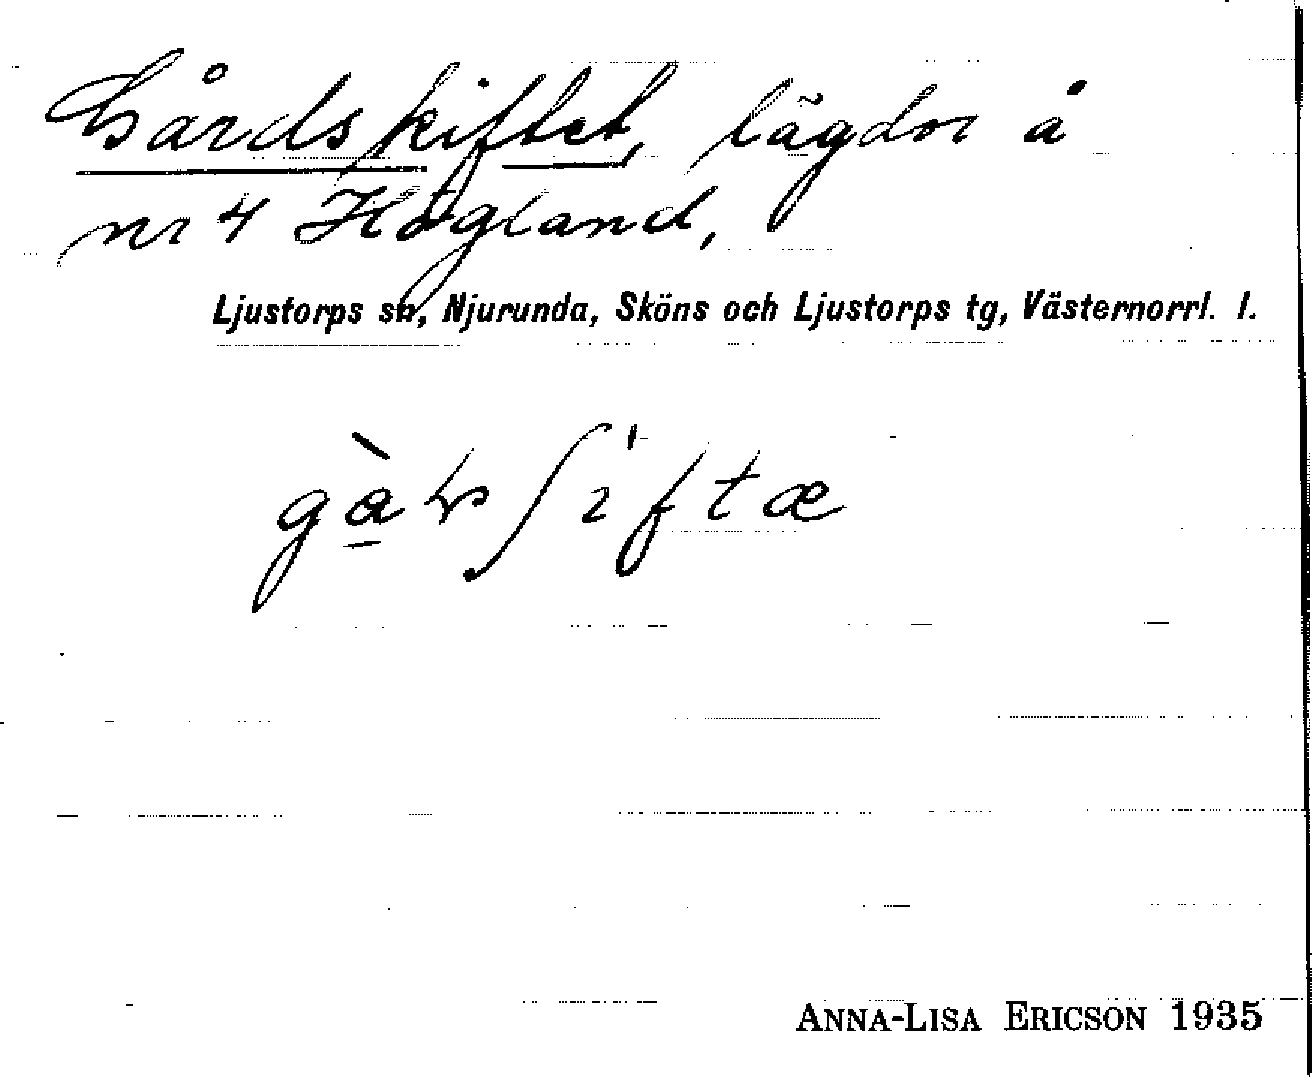 Gårdskiftet, lägdor å
nr 4 Högland,
Ljustorps sn, Njurunda, Sköns och Ljustorps tg, Västernorrl. l.
ANNA-LISA ERICSON 1935